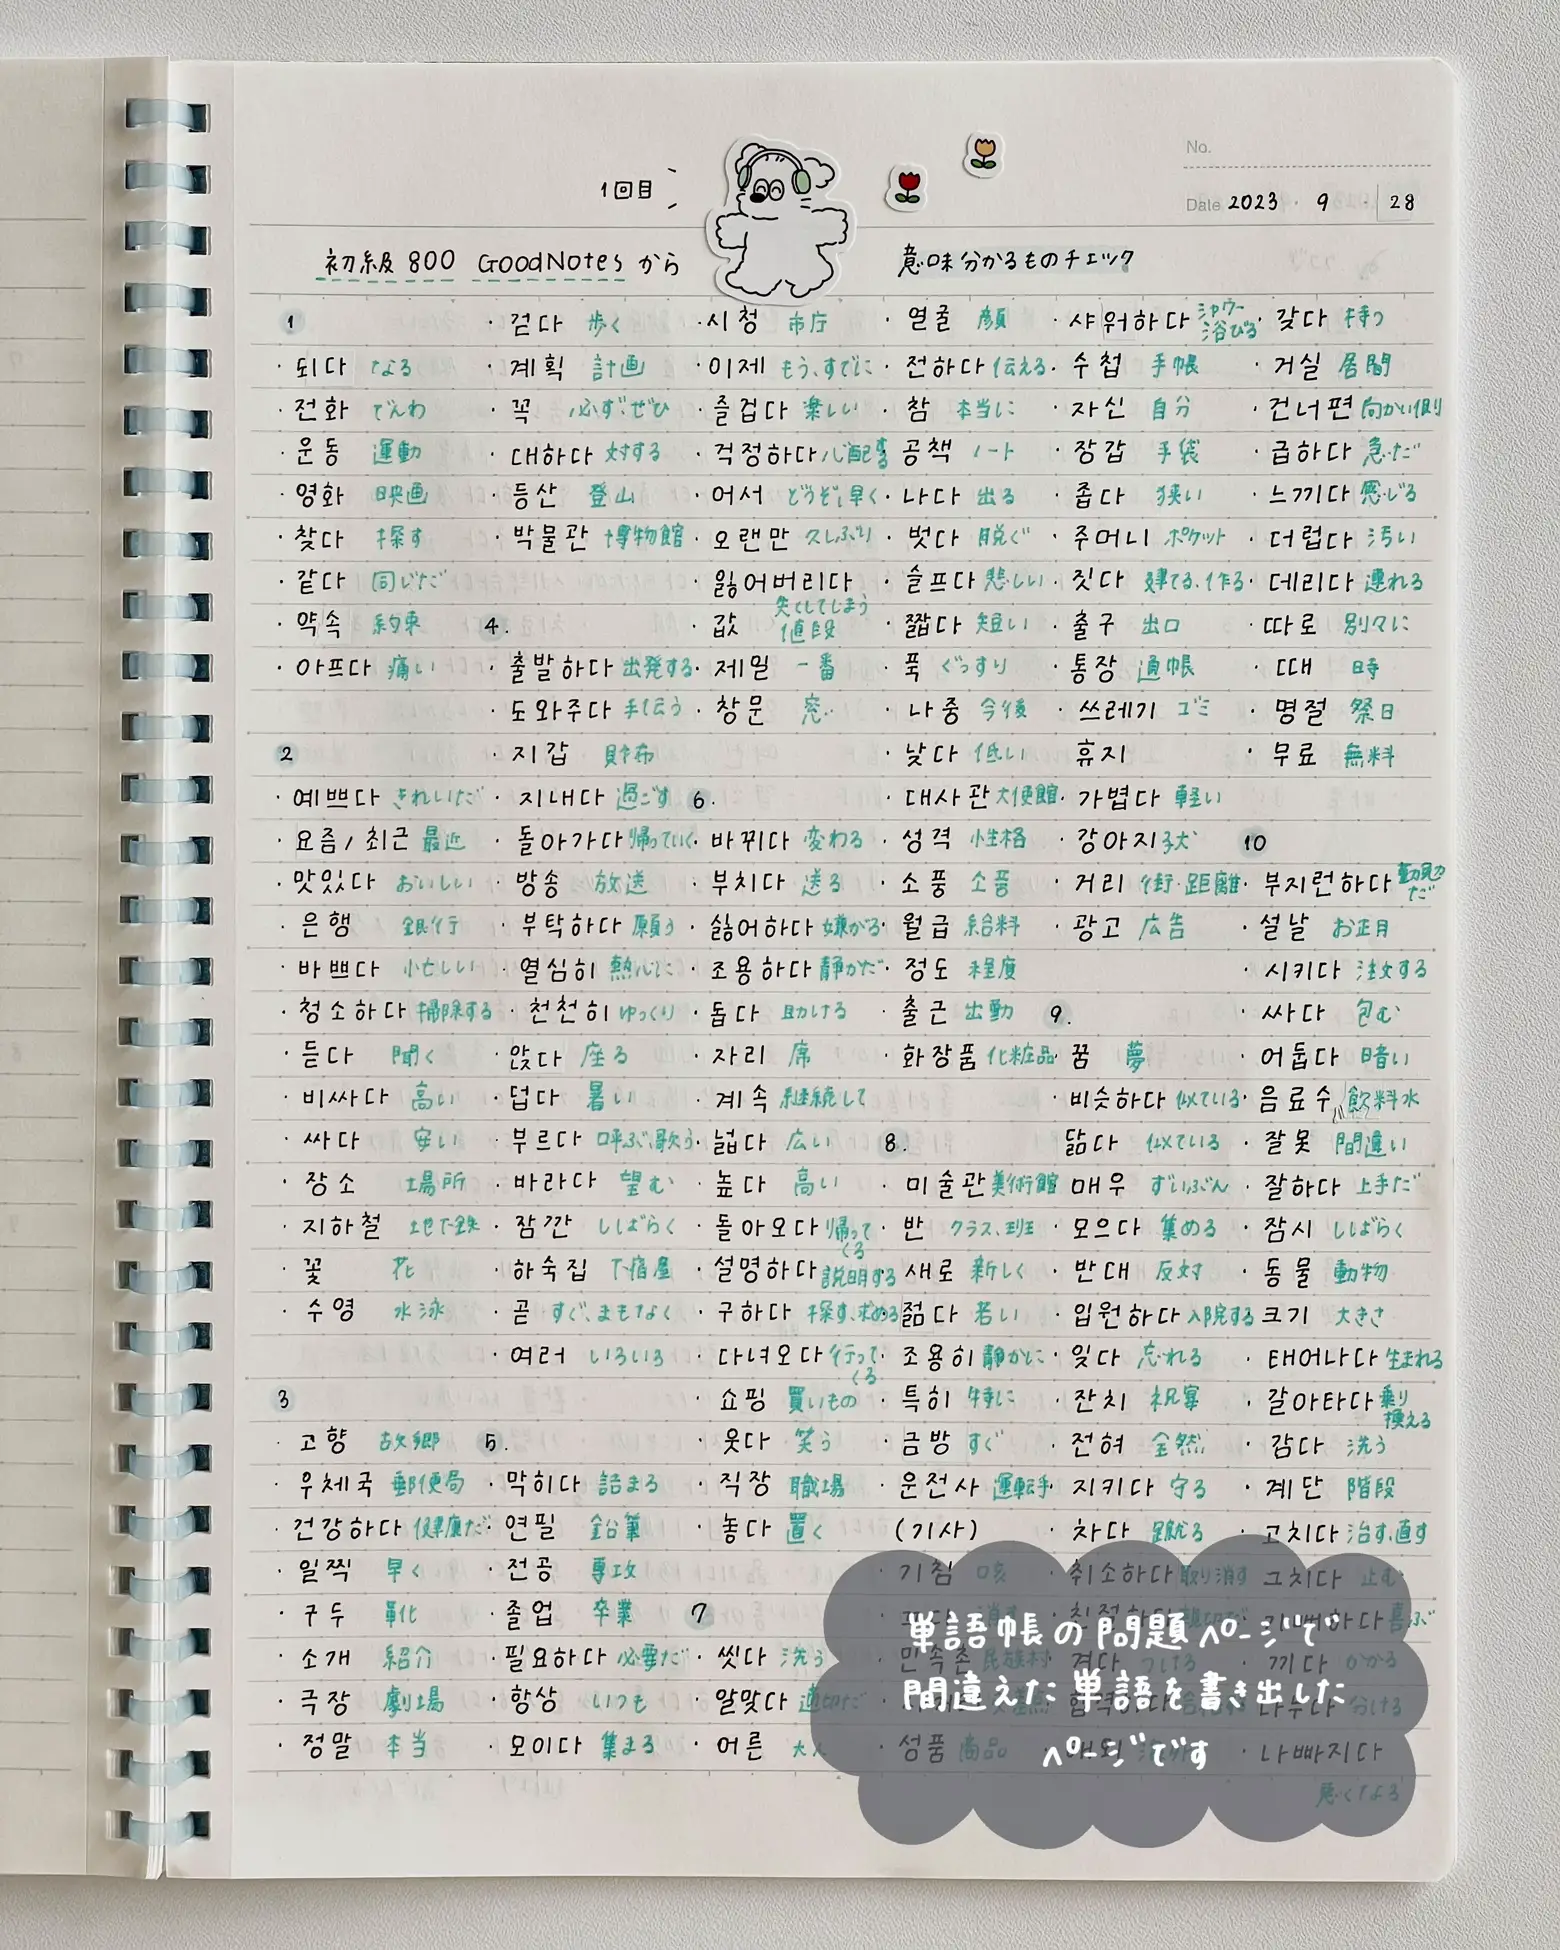 No.
1回目
Date 2023 9 28
初級 800 GoodNotes から
意味分かるものチェック
1
・되다 なる
・전화 でんわ
・운동 運動
・영화 映画
・찾다 探す
・같다 同じだ
・약속 約束
・아프다 痛い
2
・예쁘다 きれいだ
・요즘/최근 最近
・맛있다 おいしい
・은행 銀行
・바쁘다 忙しい
・청소하다 掃除する
・듣다 聞く
・비싸다 高い
・싸다 安い
・장소 場所
・지하철 地下鉄
・꽃 花
・수영 水泳
3
・고향 故郷
・우체국 郵便局
・건강하다 健康だ
・일찍 早く
・구두 靴
・소개 紹介
・극장 劇場
・정말 本当
・걷다 歩く
・계획 計画
・꼭 必ず、ぜひ
・대하다 対する
・등산 登山
・박물관 博物館
4.
・출발하다 出発する
・도와주다 手伝う
・지갑 財布
・지내다 過ごす
・돌아가다 帰っていく
・방송 放送
・부탁하다 願う
・열심히 熱心に
・천천히 ゆっくり
・앉다 座る
・덥다 暑い
・부르다 呼ぶ、歌う
・바라다 望む
・잠깐 しばらく
・하숙집 下宿屋
・곧 すぐ、まもなく
・여러 いろいろ
5.
・막히다 詰まる
・연필 鉛筆
・전공 専攻
・졸업 卒業
・필요하다 必要だ
・항상 いつも
・모이다 集まる
・시청 市庁
・이제 もう、すでに
・즐겁다 楽しい
・걱정하다 心配する
・어서 どうぞ、早く
・오랜만 久しぶり
・잃어버리다
失くしてしまう
・값 値段
・제일 一番
・창문 窓
6.
・바뀌다 変わる
・부치다 送る
・싫어하다 嫌がる
・조용하다 静かだ
・돕다 助ける
・자리 席
・계속 継続して
・넓다 広い
・높다 高い
・돌아오다 帰って
くる
・설명하다 説明する
・구하다 探す、求める
・다녀오다 行って
くる
・쇼핑 買いもの
・웃다 笑う
・직장 職場
・놓다 置く
7
・씻다 洗う
・알맞다 適切だ
・어른 大人
・얼굴 顔
・전하다 伝える
・참 本当に
・공책 ノート
・나다 出る
・벗다 脱ぐ
・슬프다 悲しい
・짧다 短い
・푹 ぐっすり
・나중 今後
・낮다 低い
・대사관 大使館
・성격 性格
・소풍
・월급 給料
・정도 程度
・출근 出勤
・화장품 化粧品
8.
・미술관 美術館
・반 クラス、班
・새로 新しく
젊다 若い
・조용히 静かに
・특히 特に
・금방 すぐ
・운전사 運転手
(기사)
・기침 咳
消す
민속촌 民族村
성품 商品
・샤워하다 シャワー
浴びる
・수첩 手帳
・자신 自分
・장갑 手袋
・좁다 狭い
・주머니 ポケット
・짓다 建てる、作る
・출구 出口
・통장 通帳
・쓰레기 ゴミ
휴지
・가볍다 軽い
・강아지 子犬
・거리 街・距離
・광고 広告
9.
・꿈 夢
・비슷하다 似ている
닮다 似ている
매우 ずいぶん
・모으다 集める
・반대 反対
・입원하다 入院する
・잊다 忘れる
・잔치 祝宴
・전혀 全然
・지키다 守る
・차다 蹴る
・취소하다 取り消す
・친절하다 親切だ
・갖다 持つ
・거실 居間
・건너편 向かい側
・급하다 急だ
・느끼다 感じる
・더럽다 汚い
・데리다 連れる
・따로 別々に
・때 時
・명절 祭日
・무료 無料
10
・부지런하다 勤勉
だ
・설날 お正月
・시키다 注文する
・싸다 包む
・어둡다 暗い
・음료수 飲料水
・잘못 間違い
・잘하다 上手だ
・잠시 しばらく
・동물 動物
크기 大きさ
・태어나다 生まれる
・갈아타다 乗り
換える
・감다 洗う
・계단 階段
・고치다 治す、直す
그치다 止む
기뻐하다 喜ぶ
끼다 かかる
나누다 分ける
・나빠지다
悪くなる
単語帳の問題ページで
間違えた単語を書き出した
ページです